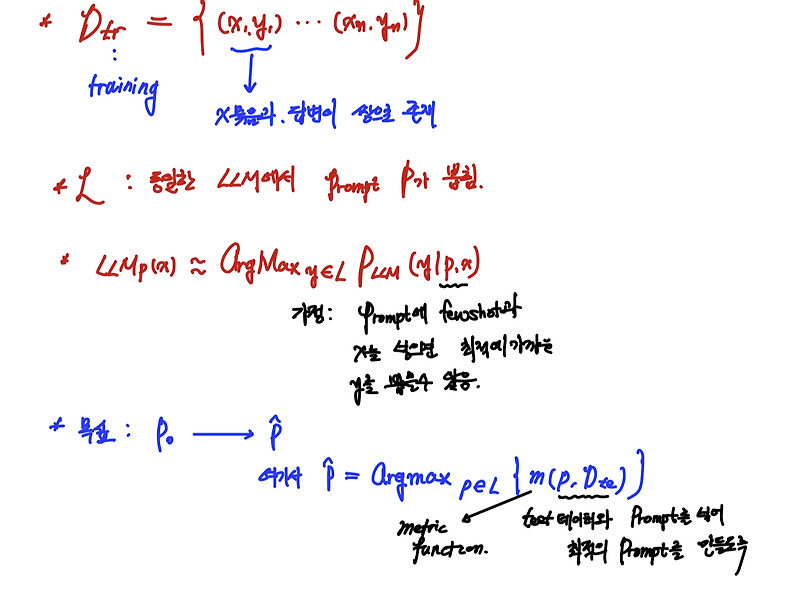 * D_tr = { (x₁, y₁) ··· (xₙ, yₙ) }
training
x묶음과 답변이 쌍으로 존재
* L : 동일한 LLM에서 prompt P가 뽑힘.
* LLM_p(x) ≈ ArgMax_{y∈L} P_LLM (y|p,x)
가정: Prompt에 fewshot과
x를 넣으면 최적에 가까운
y를 뽑을수 있음.
* 목표 : P₀ → P̂
여기서 P̂ = Argmax_{p∈L} { m(p, D_te) }
metric function.
test 데이터와 Prompt를 넣어
최적의 Prompt를 만들도록